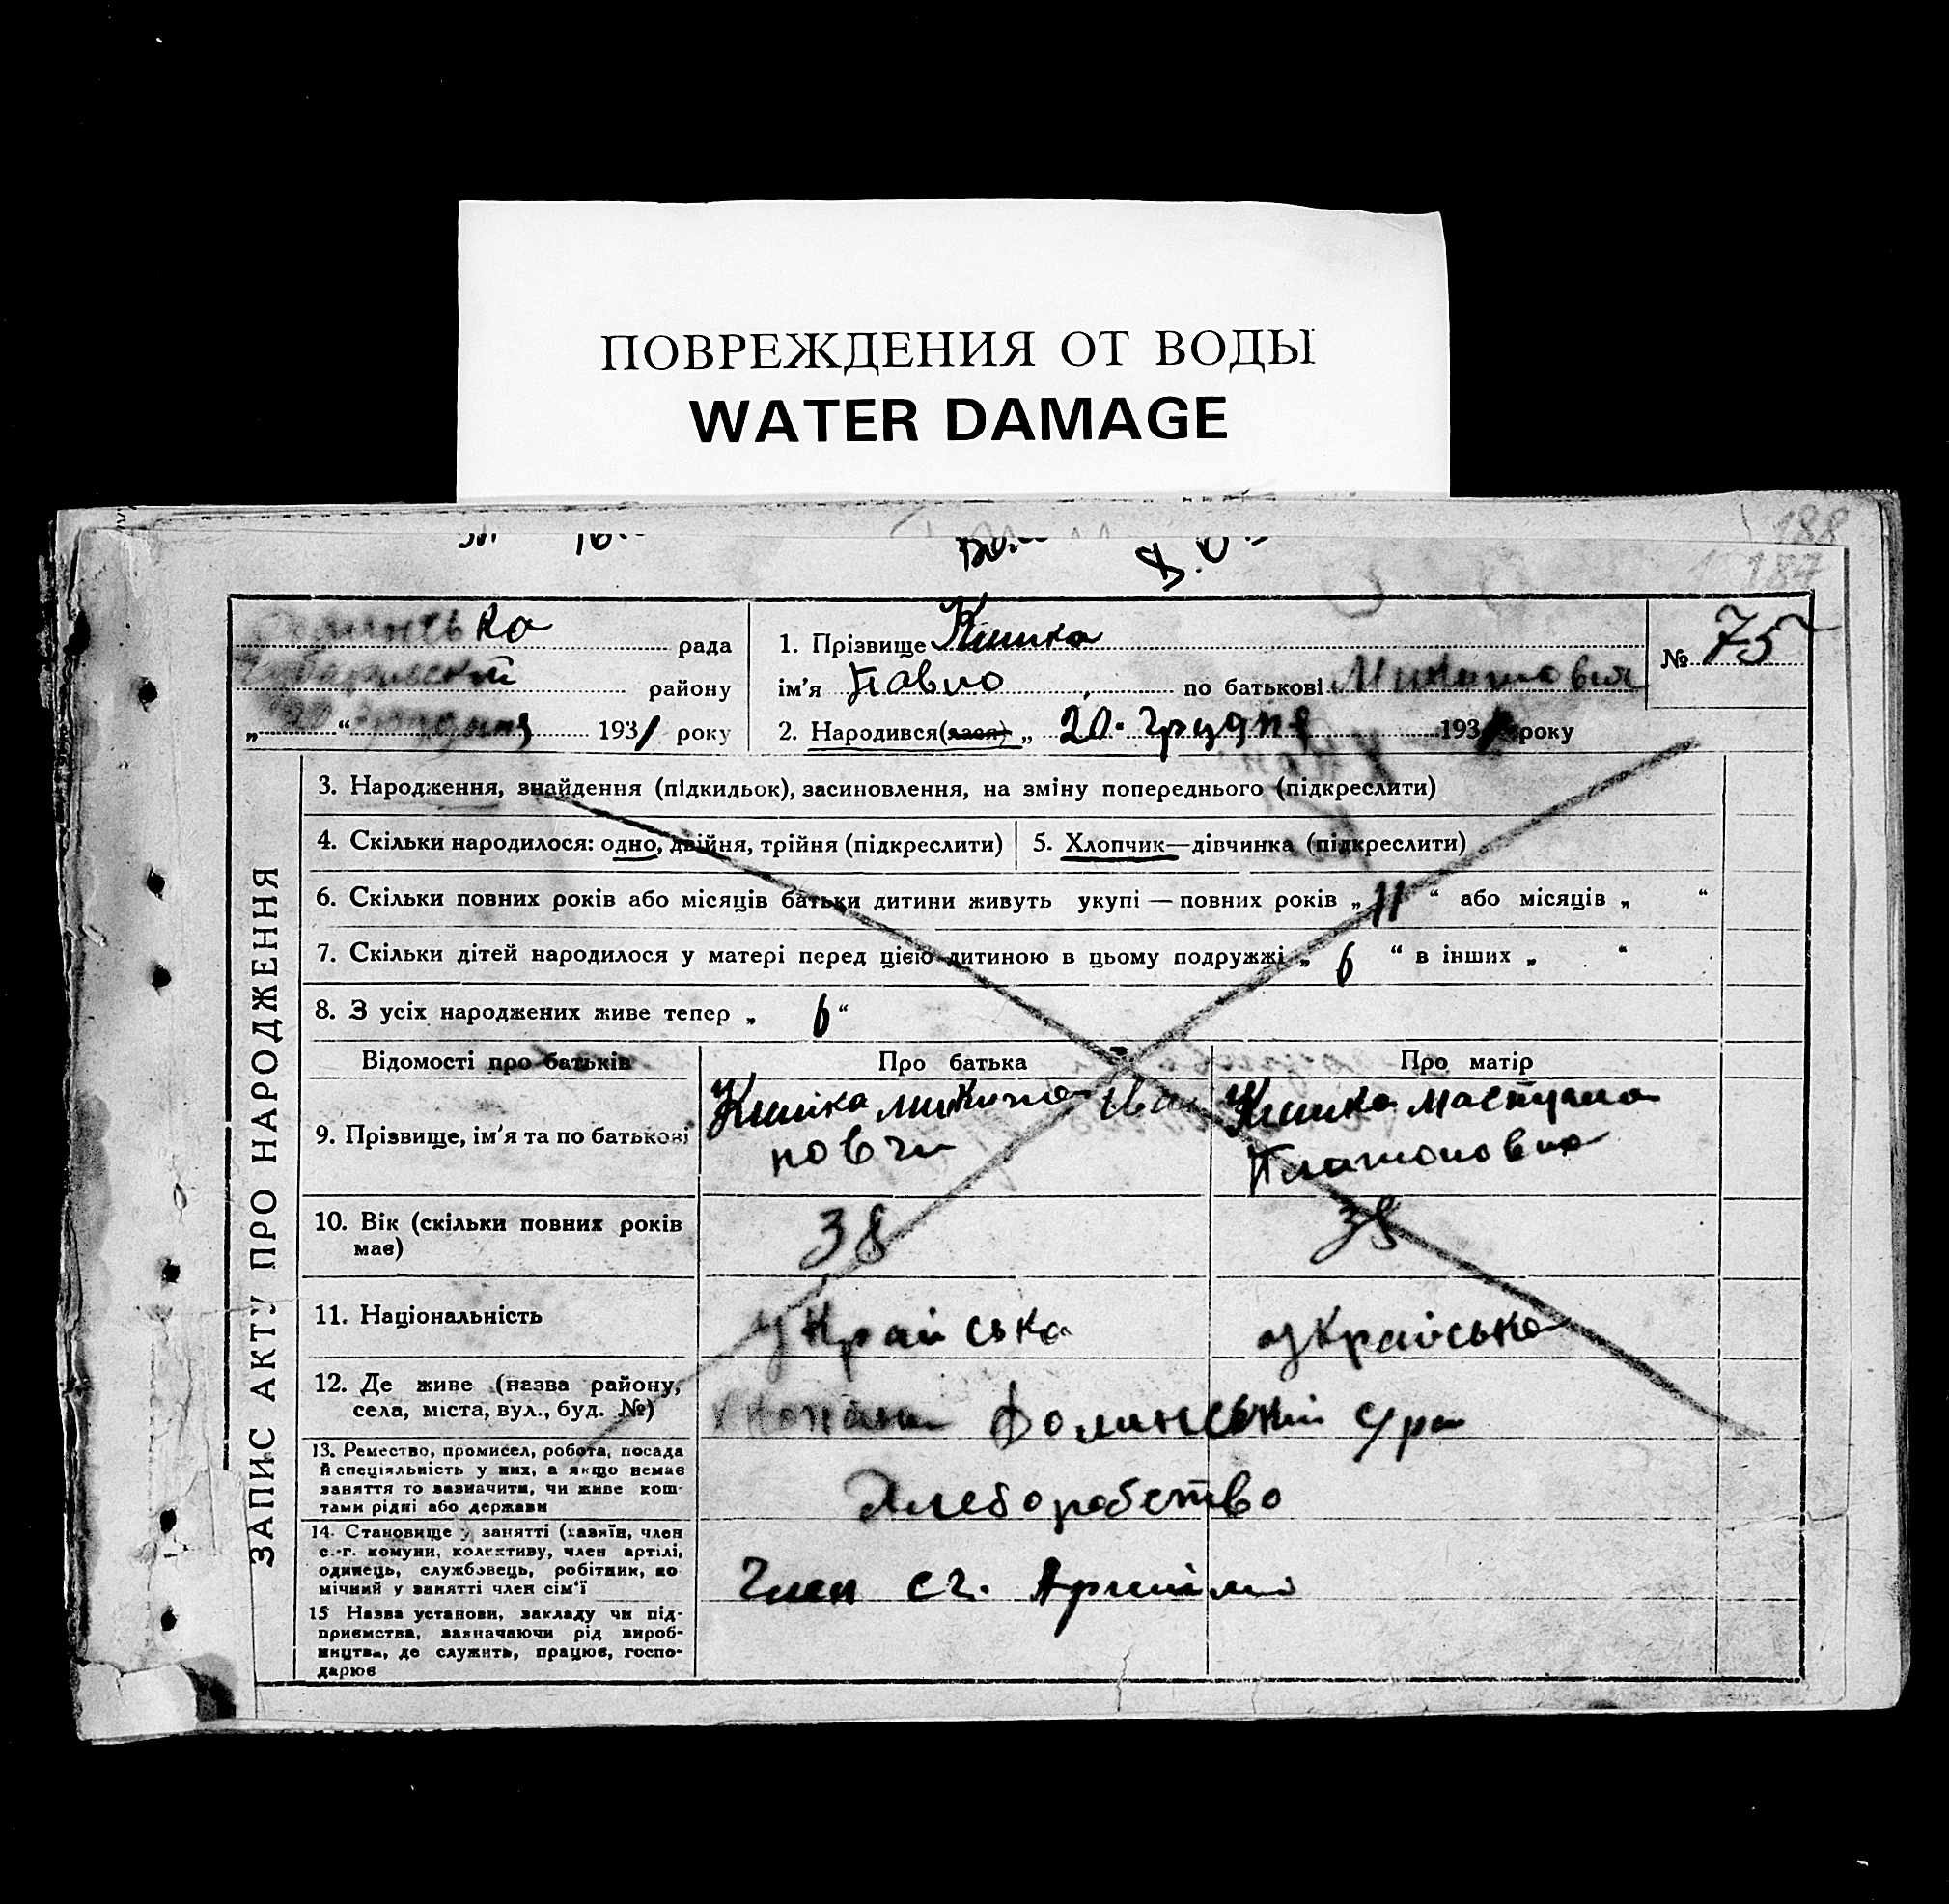 ПОВРЕЖДЕНИЯ ОТ ВОДЫ
WATER DAMAGE
188
187
рада
району
1931 року
1. Прізвище Кишка
ім'я Павло по батькові Микитович
2. Народився(лася) „ 20. грудня 193 року
№ 75
ЗАПИС АКТУ ПРО НАРОДЖЕННЯ
3. Народження, знайдення (підкидьок), засиновлення, на зміну попереднього (підкреслити)
4. Скільки народилося: одно, двійня, трійня (підкреслити)
5. Хлопчик—дівчинка (підкреслити)
6. Скільки повних років або місяців батьки дитини живуть укупі — повних років „ 11 “ або місяців „ “
7. Скільки дітей народилося у матері перед цією дитиною в цьому подружжі „ 6 “ в інших „ “
8. З усіх народжених живе тепер „ 6 “
Відомості про батьків
Про батька
Про матір
9. Прізвище, ім'я та по батькові
Кишка Микита Іва
нович
Кишка
Платоновна
10. Вік (скільки повних років
має)
38
38
11. Національність
українська
українська
12. Де живе (назва району,
села, міста, вул., буд. №)
Долинській с/ра
13. Ремество, промисел, робота, посада
й спеціяльність у них, а якщо немає
заняття то зазначити, чи живе кош-
тами рідні або держави
Хлеборобство
14. Становище у занятті (хазяїн, член
с.-г. комуни, колективу, член артілі,
одинець, службовець, робітник, по
мічний у занятті член сім'ї
Член сг. Артілі
15 Назва установи, закладу чи під-
приємства, зазначаючи рід вироб-
ництва, де служить, працює, госпо-
дарює